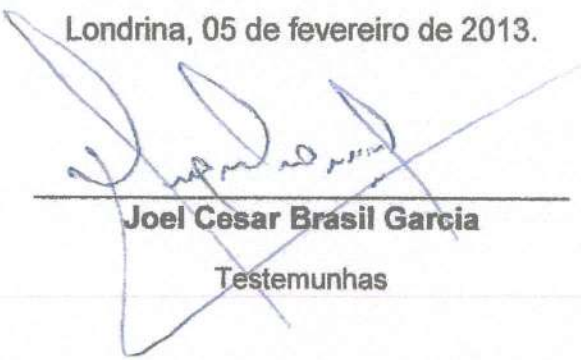 Londrina, 05 de fevereiro de 2013.
Joel Cesar Brasil Garcia
Testemunhas